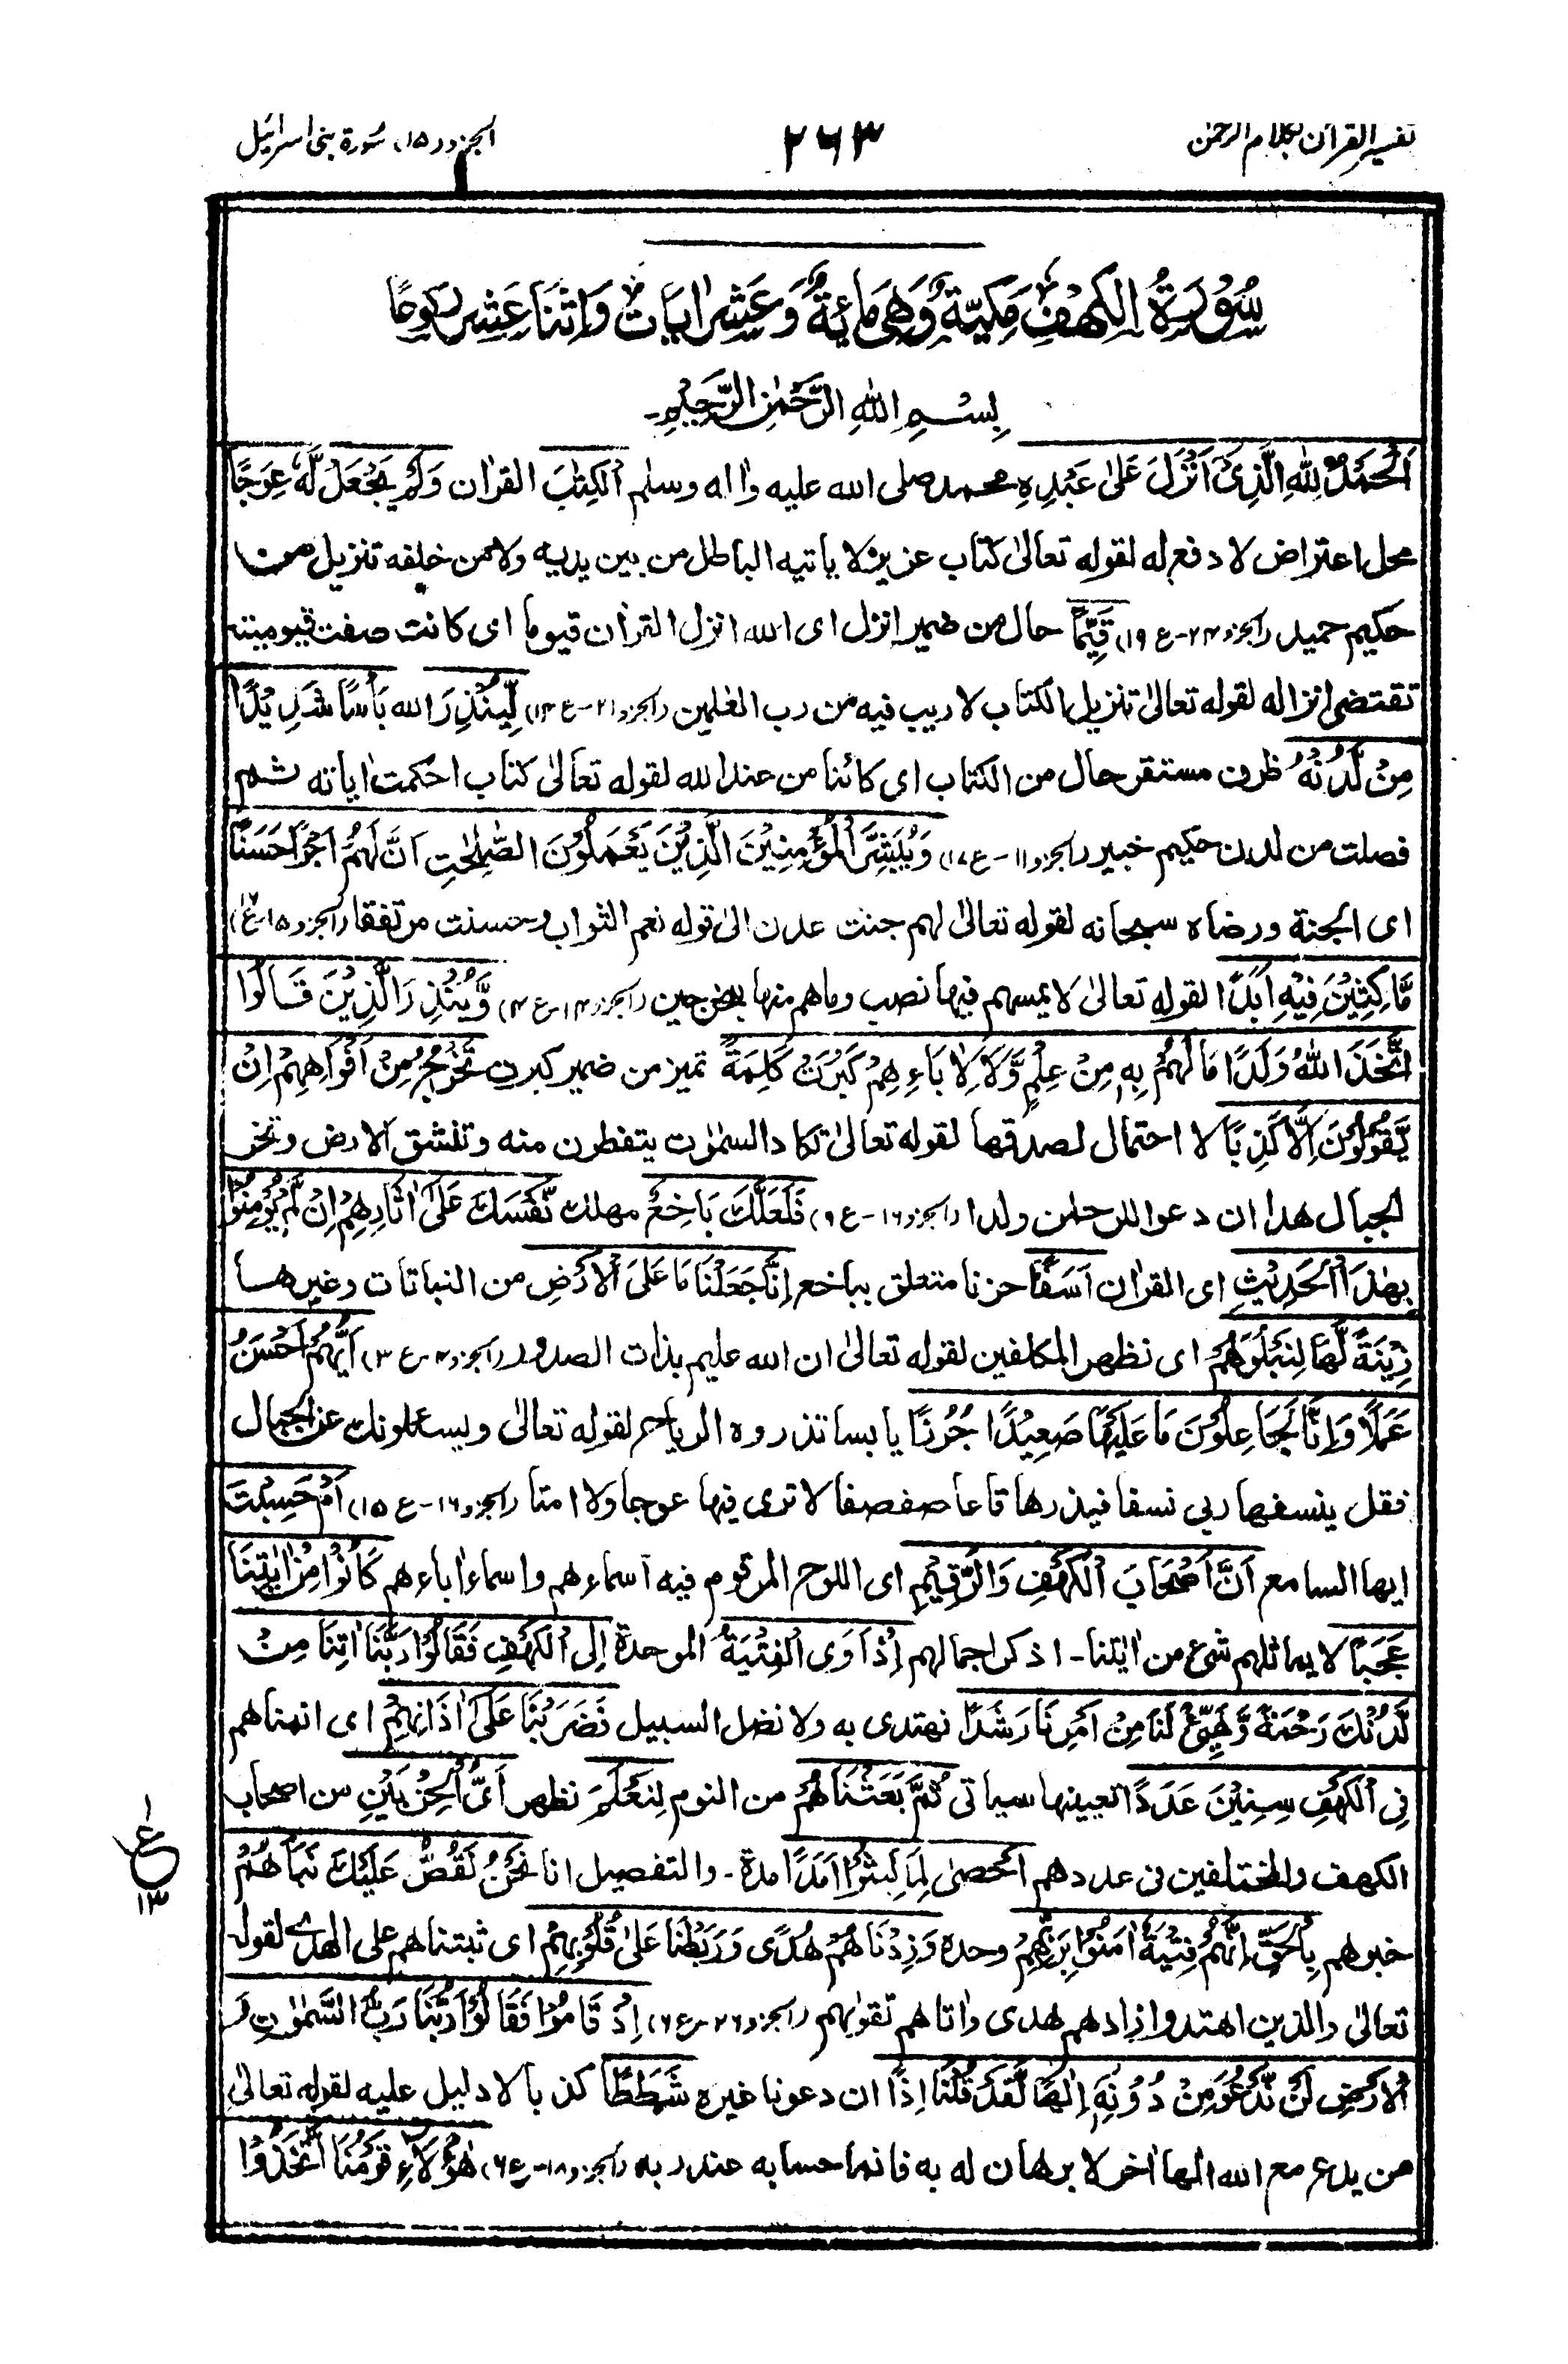 تفسير القرآن بكلام الرحمٰن
٢٦٣
الجزء (١٥) سُورة بنی اسرائیل
سُوْرَةُ الْكَهْفِ مَكِيَّةٌ وَّهِیَ مِائَةٌ وَّعَشْرُ اٰيَاتٍ وَاثْنَا عَشَرَ رُكُوْعًا
بِسْمِ اللهِ الرَّحْمٰنِ الرَّحِيْمِ
اَلْحَمْدُ لِلّٰهِ الَّذِیْۤ اَنْزَلَ عَلٰى عَبْدِهِ محمد صلى الله عليه واٰله وسلم الْكِتٰبَ القراٰن وَلَمْ يَجْعَلْ لَّهٗ عِوَجًا
محل اعتراض لا دفع له لقوله تعالىٰ كتاب عزيز لا ياتيه الباطل من بين يديه ولا من خلفه تنزيل من
حكيم حميد (الجزو ٢٤-ع ١٩) قَيِّمًا حال من ضمير انزل اى الله انزل القراٰن قيوما اى كانت صفت قيوميته
تقتضى انزاله لقوله تعالىٰ تنزيل الكتاب لا ريب فيه من رب العٰلمين (الجزو ٢١-ع ١٤) لِّيُنْذِرَ الله بَاْسًا شَدِيْدًا
مِنْ لَّدُنْهُ ظرف مستقر حال من الكتاب اى كائنا من عند الله لقوله تعالىٰ كتاب احكمت اٰياته ثم
فصلت من لدن حكيم خبير (الجزو ١١-ع ١٧) وَيُبَشِّرَ الْمُؤْمِنِيْنَ الَّذِيْنَ يَعْمَلُوْنَ الصّٰلِحٰتِ اَنَّ لَهُمْ اَجْرًا حَسَنًا
اى الجنة ورضاه سبحانه لقوله تعالىٰ لهم جنت عدن الىٰ قوله نعم الثواب وحسنت مرتفقا (الجزو ١٥-ع )
مَّاكِثِيْنَ فِيْهِ اَبَدًا لقوله تعالىٰ لا يمسهم فيها نصب وما هم منها بمخرجين (الجزو ١٤-ع ٤) وَّيُنْذِرَ الَّذِيْنَ قَالُوا
اتَّخَذَ اللهُ وَلَدًا مَا لَهُمْ بِهٖ مِنْ عِلْمٍ وَّلَا لِاٰبَاءِهِمْ كَبُرَتْ كَلِمَةً تميز من ضمير كبرت تَخْرُجُ مِنْ اَفْوَاهِهِمْ اِنْ
يَّقُوْلُوْنَ اِلَّا كَذِبًا لا احتمال لصدقها لقوله تعالىٰ تكاد السمٰوٰت يتفطرن منه وتنشق الارض وتخر
الجبال هدا ان دعوا للرحمٰن ولدا (الجزو ١٦-ع ٩) فَلَعَلَّكَ بَاخِعٌ مهلك نَّفْسَكَ عَلٰۤى اٰثَارِهِمْ اِنْ لَّمْ يُؤْمِنُوْا
بِهٰذَا الْحَدِيْثِ اى القراٰن اَسَفًا حزنا متعلق بباخع اِنَّا جَعَلْنَا مَا عَلَى الْاَرْضِ من النباتات وغيرها
زِيْنَةً لَّهَا لِنَبْلُوَهُمْ اى نظهر المكلفين لقوله تعالىٰ ان الله عليم بذات الصدور (الجزو ٤-ع ٣) اَيُّهُمْ اَحْسَنُ
عَمَلًا وَاِنَّا لَجَاعِلُوْنَ مَا عَلَيْهَا صَعِيْدًا جُرُزًا يابسا تذروه الرياح لقوله تعالىٰ ويسئلونك عن الجبال
فقل ينسفها ربى نسفا فيذرها قاعا صفصفا لا ترى فيها عوجا ولا امتا (الجزو ١٦-ع ١٥) اَمْ حَسِبْتَ
ايها السامع اَنَّ اَصْحَابَ الْكَهْفِ وَالرَّقِيْمِ اى اللوح المرقوم فيه اسماءهم واسماء اٰباءهم كَانُوْا مِنْ اٰيٰتِنَا
عَجَبًا لا يماثلهم شئ من اٰيٰتنا - اذكر اجمالهم اِذْ اَوَى الْفِتْيَةُ الموحدة اِلَى الْكَهْفِ فَقَالُوْا رَبَّنَا اٰتِنَا مِنْ
لَّدُنْكَ رَحْمَةً وَّهَيِّئْ لَنَا مِنْ اَمْرِنَا رَشَدًا نهتدى به ولا نضل السبيل فَضَرَبْنَا عَلٰۤى اٰذَانِهِمْ اى انمناهم
فِى الْكَهْفِ سِنِيْنَ عَدَدًا تعيينها سياتى ثُمَّ بَعَثْنَاهُمْ من النوم لِنَعْلَمَ نظهر اَىُّ الْحِزْبَيْنِ من اصحاب
الكهف والمختلفين فى عددهم اَحْصٰى لِمَا لَبِثُوْا اَمَدًا مدة - والتفصيل انا نَحْنُ نَقُصُّ عَلَيْكَ نَبَاَهُمْ
خبرهم بِالْحَقِّ اِنَّهُمْ فِتْيَةٌ اٰمَنُوْا بِرَبِّهِمْ وحده وَزِدْنَاهُمْ هُدًى وَرَبَطْنَا عَلٰى قُلُوْبِهِمْ اى ثبتناهم على الهدے لقوله
تعالىٰ والذين اهتدوا زادهم هدى واٰتاهم تقوٰىهم (الجزو ٢٦-ع ٦) اِذْ قَامُوْا فَقَالُوْا رَبُّنَا رَبُّ السَّمٰوٰتِ وَ
الْاَرْضِ لَنْ نَّدْعُوَ مِنْ دُوْنِهٖۤ اِلٰهًا لَّقَدْ قُلْنَا اِذًا ان دعونا غيره شَطَطًا كذبا لا دليل عليه لقوله تعالىٰ
من يدع مع الله الٰها اٰخر لا برهان له به فانما حسابه عند ربه (الجزو ١٨-ع ٦) هٰۤؤُلَاءِ قَوْمُنَا اتَّخَذُوْا
ع
١٣